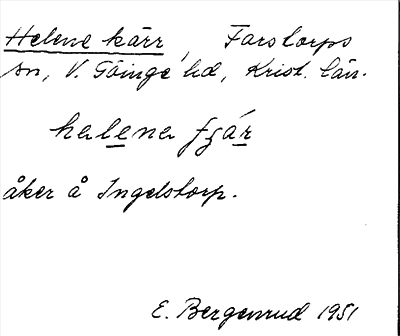 Helene kärr, Farstorps
sn, V. Göinge hd, Krist. län.
halena fjár
åker å Ingelstorp.
E. Bergenrud 1951